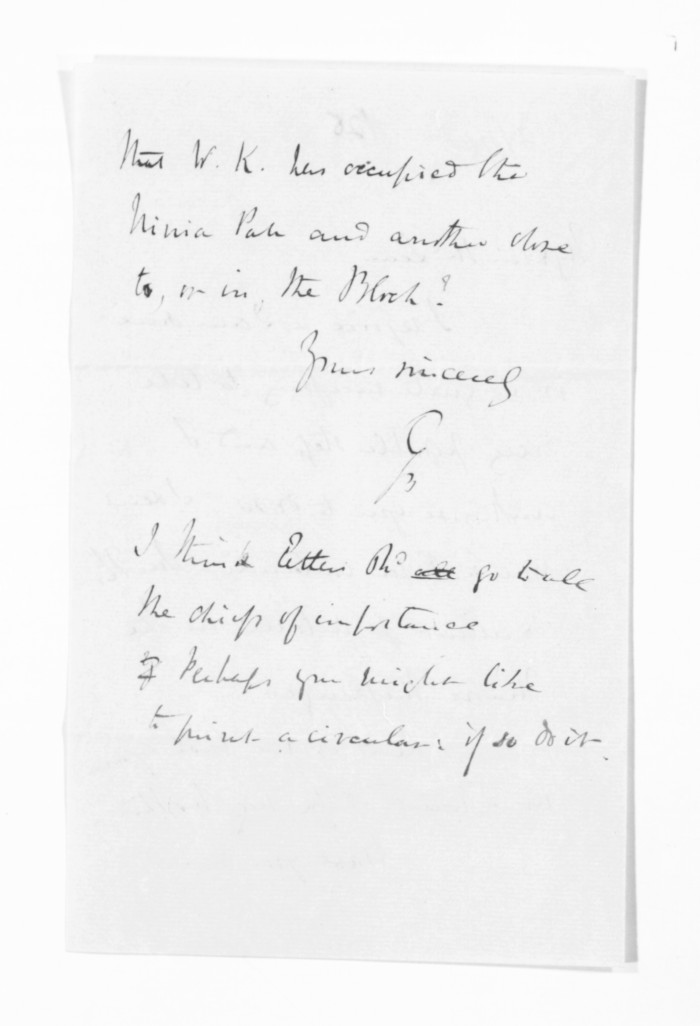 that W. K. has occupied the
Ninia Pah and another close
to, or in, the Block?
Yours sincerely
I think letters shd all go to all
the chiefs of importance
Perhaps you might like
to print a circular: if so do it.